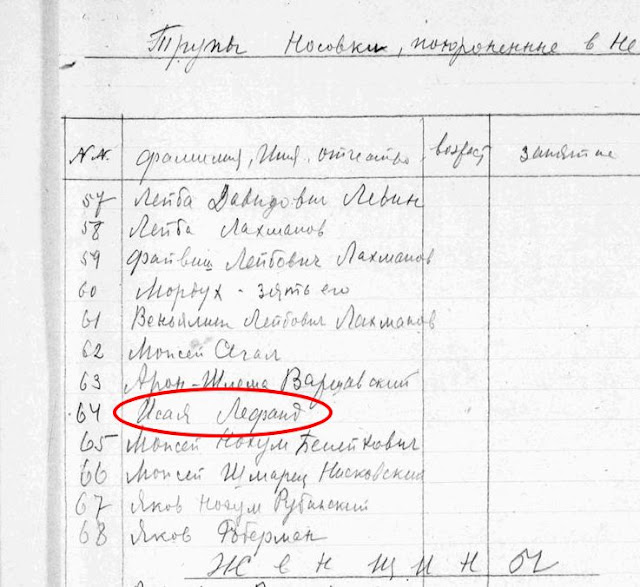 Трупы Носовки, похороненные в Не
N.N. фамилия, Имя, отчество возраст занятие
57 Лейба Давидович Левин
58 Лейба Лахманов
59 Файвиш Лейбович Лахманов
60 Мордух - зять его
61 Веньямин Лейбович Лахманов
62 Моисей Сегал
63 Арон-Шлема Варшавский
64 Исая
65 Моисей Нохум
66 Моисей Шмарец Носковский
67 Яков Нохум Рубинский
68 Яков
Женщины